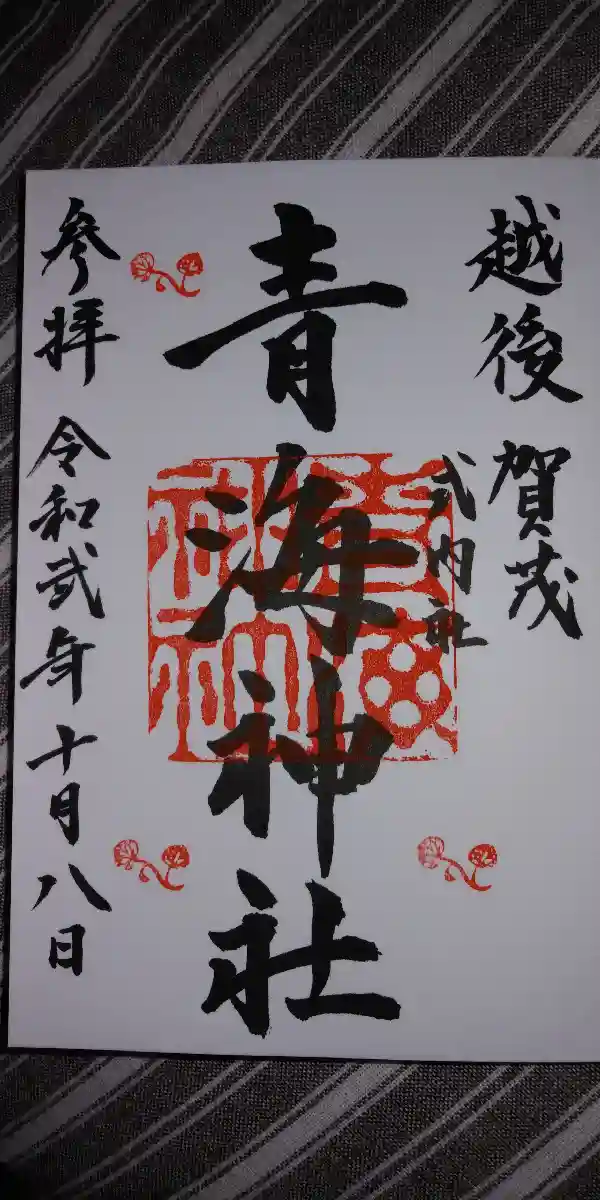 越後 賀茂
式内社
青海神社
参拝 令和弐年十月八日